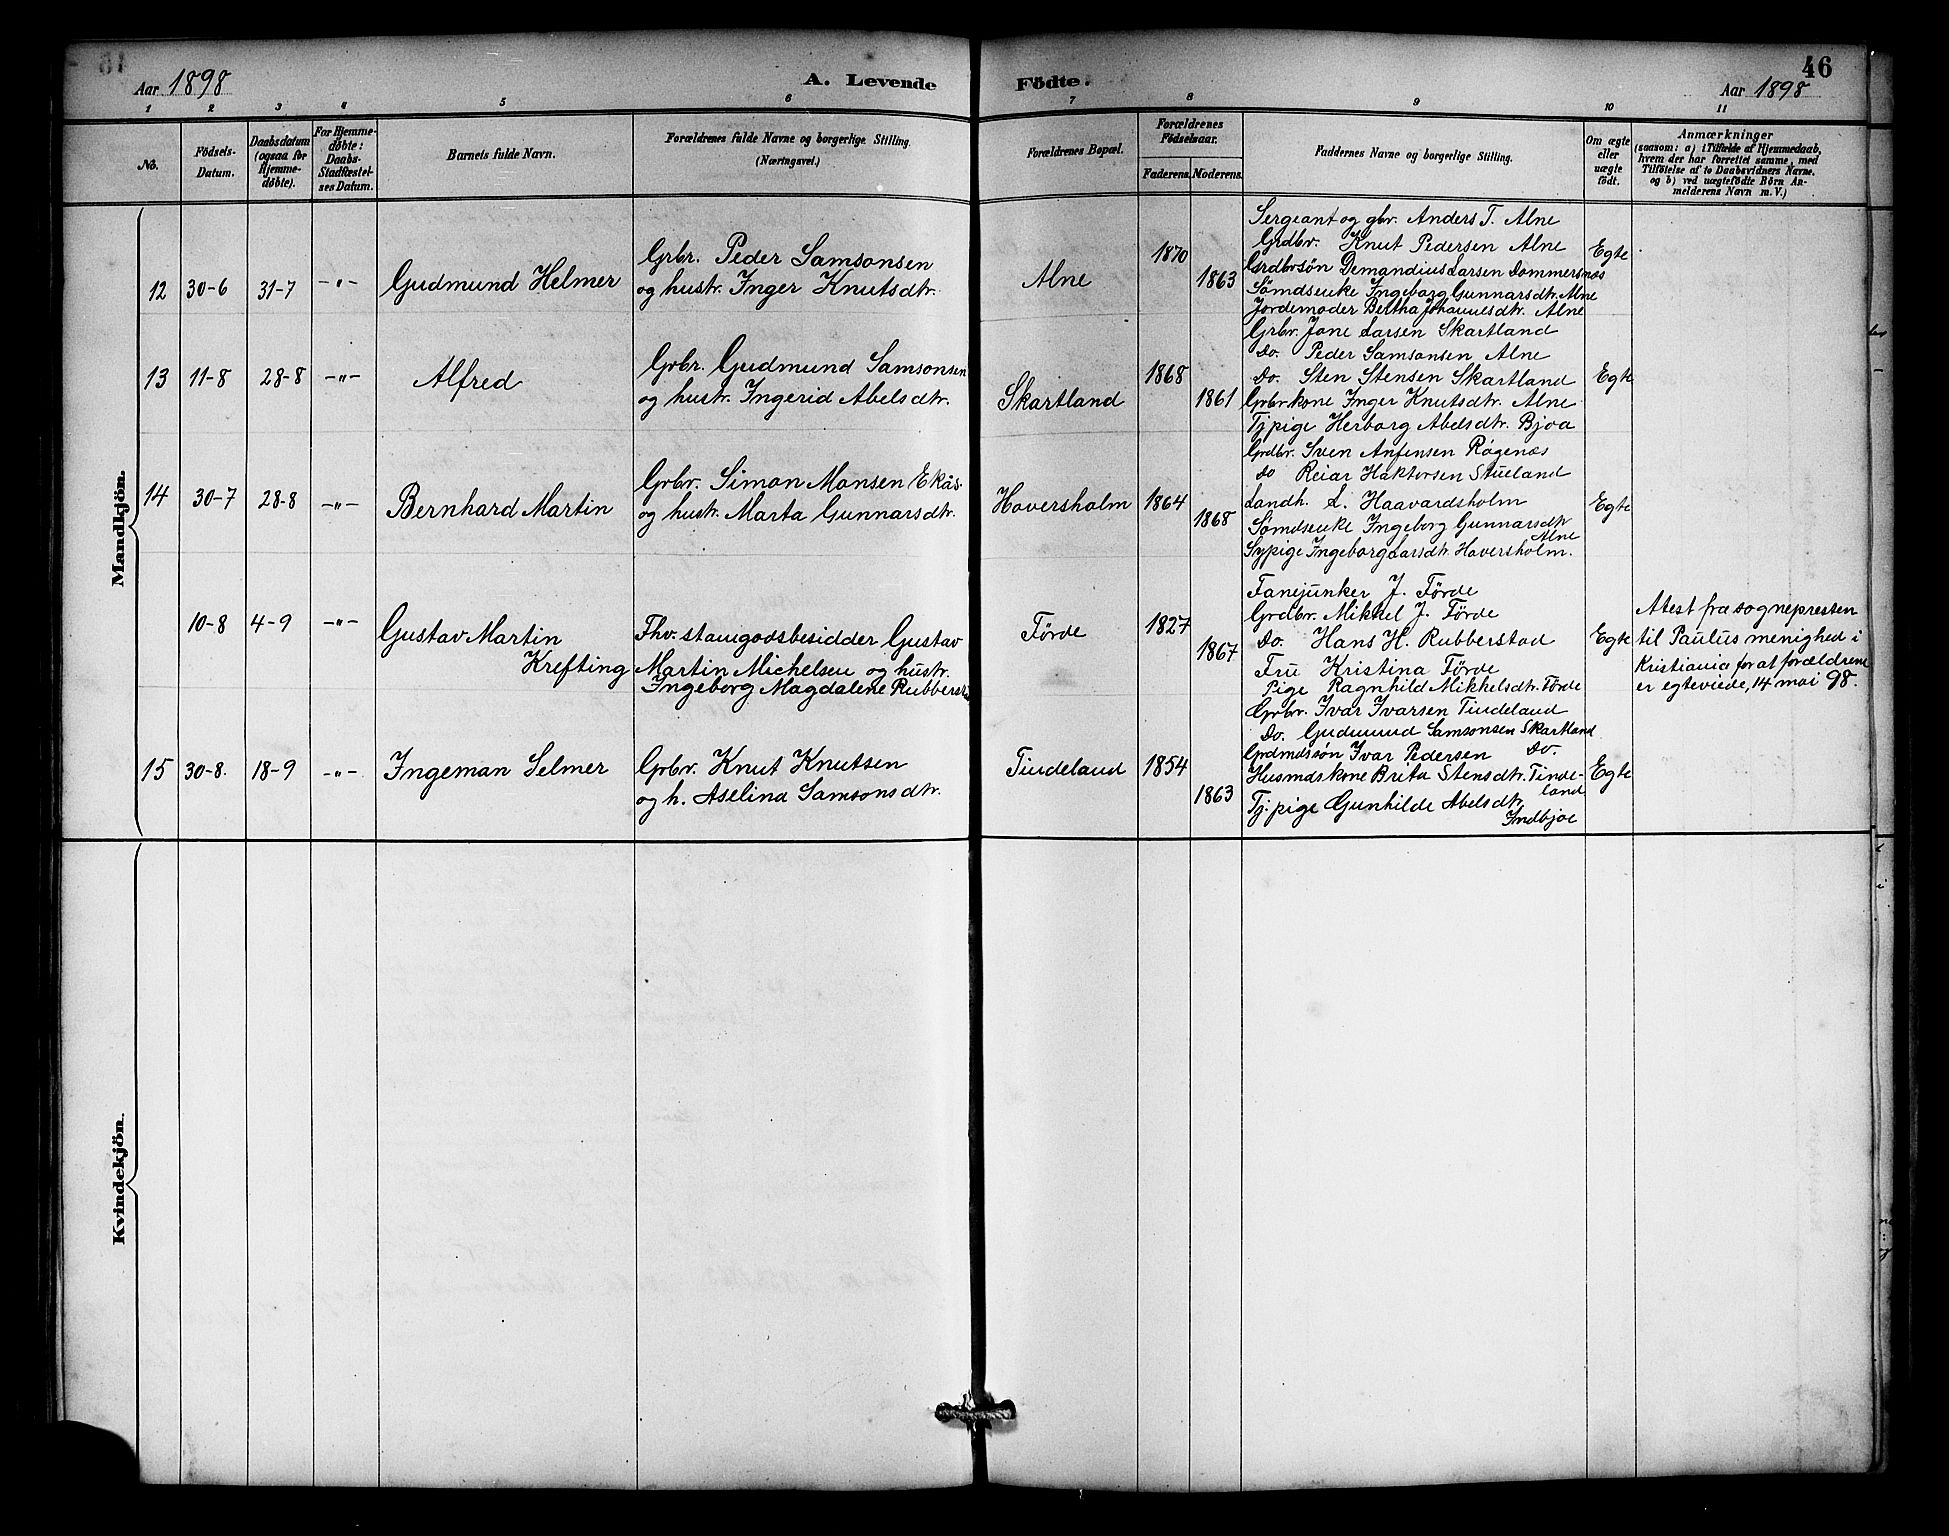 Aar 1898
A. Levende
Födte.
46
Aar 1898
1 2 3 4 5 6 7 8 9 10 11
No.
Födsels-
Datum.
Daabsdatum
(ogsaa for
Hjemme-
døbte).
For Hjemme-
døbte:
Daabs-
Stadfæstel-
ses Datum.
Barnets fulde Navn.
Forældrenes fulde Navne og borgerlige Stilling.
(Næringsvei.)
Forældrenes Bopæl.
Forældrenes
Födselsaar.
Faderens. Moderens.
Faddernes Navne og borgerlige Stilling.
Om ægte
eller
uægte
født.
Anmærkninger
(saasom: a) i Tilfælde af Hjemmedaab,
hvem der har forrettet samme, med
Tilføielse af to Daabsvidners Navne,
og b) ved uægtefödte Börn An-
melderens Navn m. V.)
Mandkjön.
12 30-6 31-7 -"- Gudmund Helmer
Grbr. Peder Samsonsen
og hustr. Inger Knutsdtr.
Alne
1870
1863
Sergeant og gbr. Anders T. Alne
Grdbr. Knut Pedersen Alne
Grdbrsön Demandius Larsen Dommersnæs
Sömdsenke Ingeborg Gunnarsdtr. Alne
Jordemoder Bertha Johannesdtr. Alne
Egte
13 11-8 28-8 -"- Alfred
Grbr. Gudmund Samsonsen
og hustr. Ingerid Abelsdtr.
Skartland
1868
1861
Grbr. Jone Larsen Skartland
Do. Peder Samsonsen Alne
Do. Sten Stensen Skartland
Grbrkone Inger Knutsdtr. Alne
Tjpige Herborg Abelsdtr. Bjoa
Egte
14 30-7 28-8 -"- Bernhard Martin
Grbr. Simon Monsen Ekås
og hustr. Marta Gunnarsdtr.
Hoversholm
1864
1868
Grdbr. Sven Anfensen Rögenæs
Do Reiar Haktorsen Stueland
Landh. L. Haavardsholm
Sömdsenke Ingeborg Gunnarsdtr
Alne
Sypige Ingeborg Larsdtr. Hoversholm.
Egte
10-8 4-9 -"- Gustav Martin
Krefting
Fhv. stamgodsbesidder Gustav
Martin Michelsen og hustr.
Ingeborg Magdalene Rubberstad
Förde
1827
1867
Fanejunker J. Förde
Grdbr. Mikkel J. Förde
Do. Hans H. Rubberstad
Fru Kristina Förde
Pige Ragnhild Mikkelsdtr. Förde
Egte
Atest fra sognepresten
til Paulus menighed i
Kristiania for at forældrene
er egteviede, 14 mai 98.
15 30-8. 18-9 -"- Ingeman Selmer
Grbr. Knut Knutsen
og h. Aselina Samsonsdtr.
Tindeland
1854
1863
Grbr. Ivar Ivarsen Tindeland
Do. Gudmund Samsonsen Skartland
Grdmdssön Ivar Pedersen Do.
Husmdskone Brita Stensdtr. Tinde-
land
Tj.pige Gunhilde Abelsdtr.
Indbjoe
Egte
Kvindekjön.